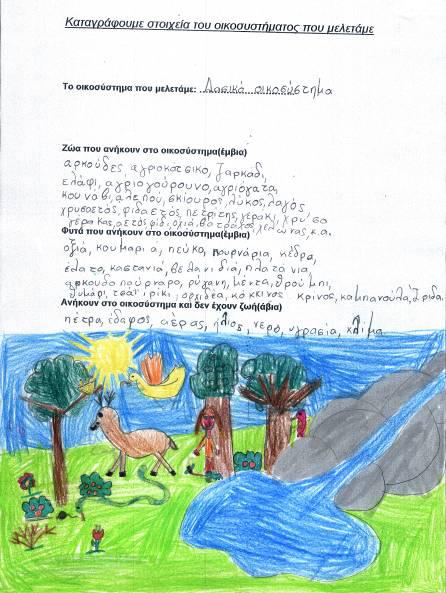 Καταγράφουμε στοιχεία του οικοσυστήματος που μελετάμε
Το οικοσύστημα που μελετάμε: Δασικό οικοσύστημα
Ζώα που ανήκουν στο οικοσύστημα(έμβια)
αρκούδες, αγριοκάτσικο, ζαρκάδι,
ελάφι, αγριογούρουνο, αγριόγατα,
κουνάβι, αλεπού, σκίουρος, λύκος, λαγός
χρυσαετός, φιδαετός, πετρίτης, γεράκι, χρυσο
γέρακας, αετός, φίδι, οχιά, βάτραχος, χελώνας, κ.α.
Φυτά που ανήκουν στο οικοσύστημα(έμβια)
οξιά, κουμαριά, πεύκο, πουρνάρια, κέδρα,
έλατο, καστανιά, βελανιδιά, πλατάνια,
αρκουδοπούρναρο, ρίγανη, μέντα, θρούμπι,
θυμάρι, τσάι, ρίκι, ορχιδέα, κόκκινος κρίνος, καμπανούλα, ίριδα
Ανήκουν στο οικοσύστημα και δεν έχουν ζωή(άβια)
πέτρα, έδαφος, αέρας, ήλιος, νερό, υγρασία, κλίμα